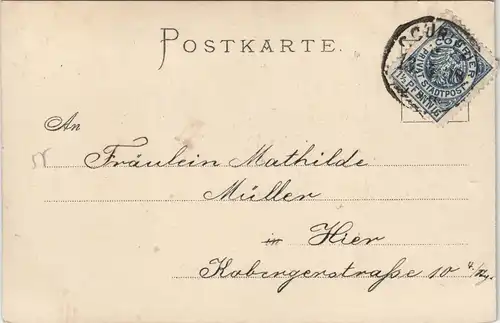 POSTKARTE.
COURIER
PRIVAT STADTPOST
1½ PFENNIG
An
Fräulein Mathilde
Müller
in Hier
Kobergerstraße 10